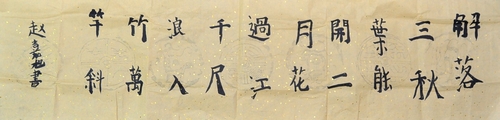 解落
三秋
葉能
開二
月花
過江
千尺
浪入
竹萬
竿斜
赵嘉懿書